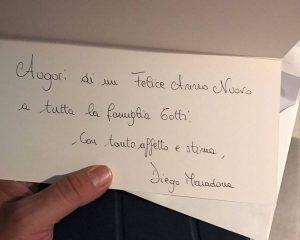 Auguri di un Felice Anno Nuovo
a tutta la famiglia Gotti.
Con tanto affetto e stima,
Diego Maradona